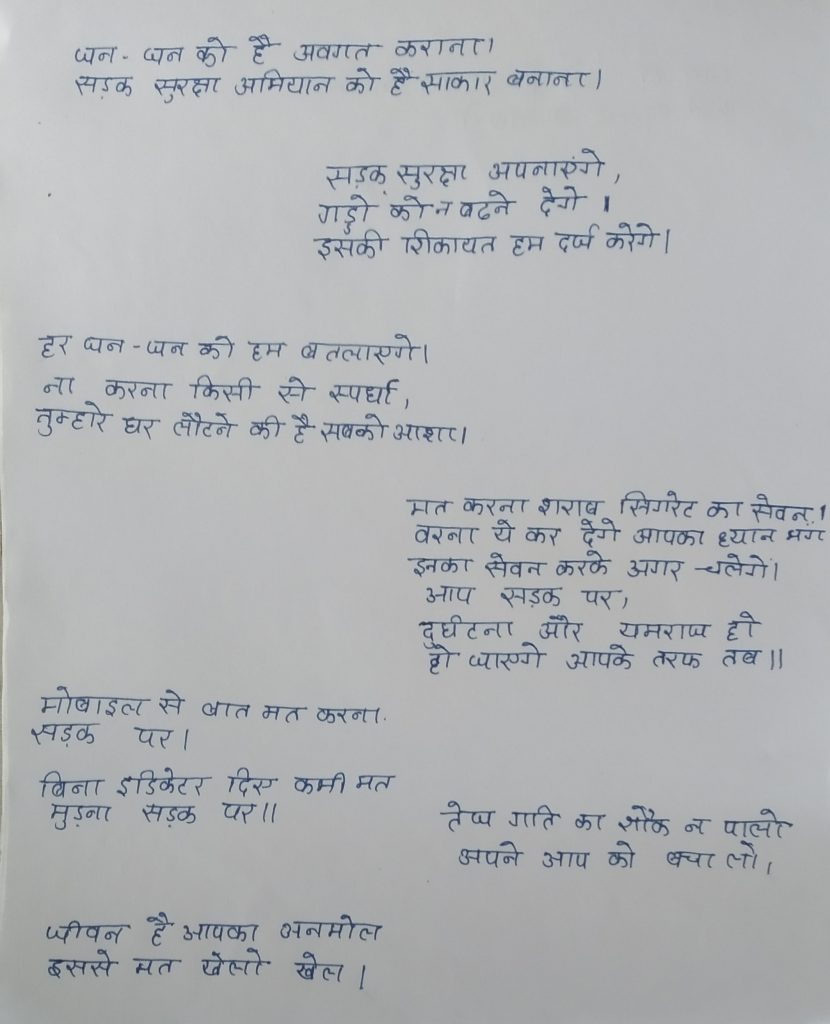 जन - जन को है अवगत कराना।
सड़क सुरक्षा अभियान को है साकार बनाना।
सड़क सुरक्षा अपनाएंगे,
गड्डो को न बढने देगे ।
इसकी शिकायत हम दर्ज करेगे।
हर जन - जन को हम बतलाएगे।
ना करना किसी से स्पर्धा,
तुम्हारे घर लौटने की है सबको आशा।
मत करना शराब सिगरेट का सेवन।
वरना ये कर देंगे आपका ध्यान भंग
इनका सेवन करके अगर चलेगे।
आप सड़क पर,
दुर्घटना और यमराज हो
हो जाएगे आपके तरफ तब॥
मोबाइल से बात मत करना.
सड़क पर।
बिना इंडिकेटर दिए कभी मत
मुड़ना सड़क पर॥
तेज गति का शौक न पालो
अपने आप को बचा लो,
जीवन है आपका अनमोल
इससे मत खेलो खेल।